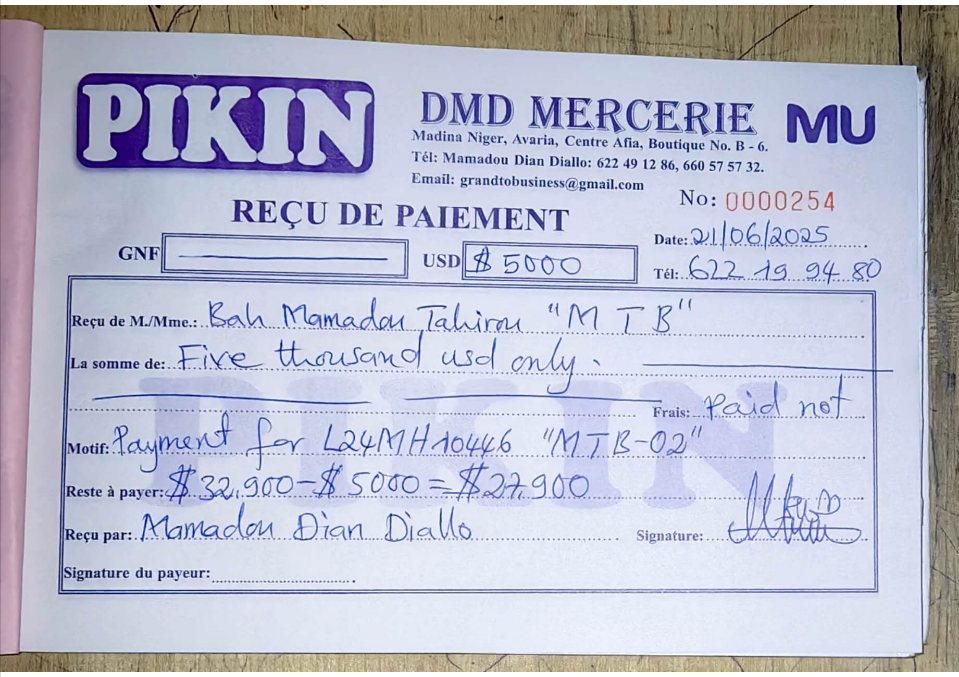 PIKIN
DMD MERCERIE
MU
Madina Niger, Avaria, Centre Afia, Boutique No. B - 6.
Tél: Mamadou Dian Diallo: 622 49 12 86, 660 57 57 32.
Email: grandtobusiness@gmail.com
No: 0000254
REÇU DE PAIEMENT
Date: 21/06/2025
GNF
USD $ 5000
Tél: 622 19 94 80
Reçu de M./Mme.: Bah Mamadou Tahirou "M T B"
La somme de: Five thousand usd only.
PIKIN
Frais: Paid not
Motif: Payment for L24MH10446 "MTB-02"
Reste à payer: $ 32.900-$ 5000 = $27.900
Reçu par: Mamadou Dian Diallo
Signature:
Signature du payeur: